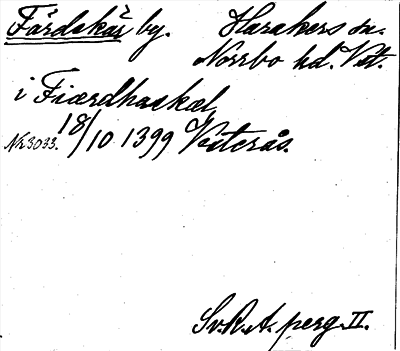 Färdskär by. Harakers sn.
Norrbo hd. Vstm.
i Fiærdhaskæl
Nr 3033. 18/10 1399 Västerås.
Sv. R. A. perg. II.